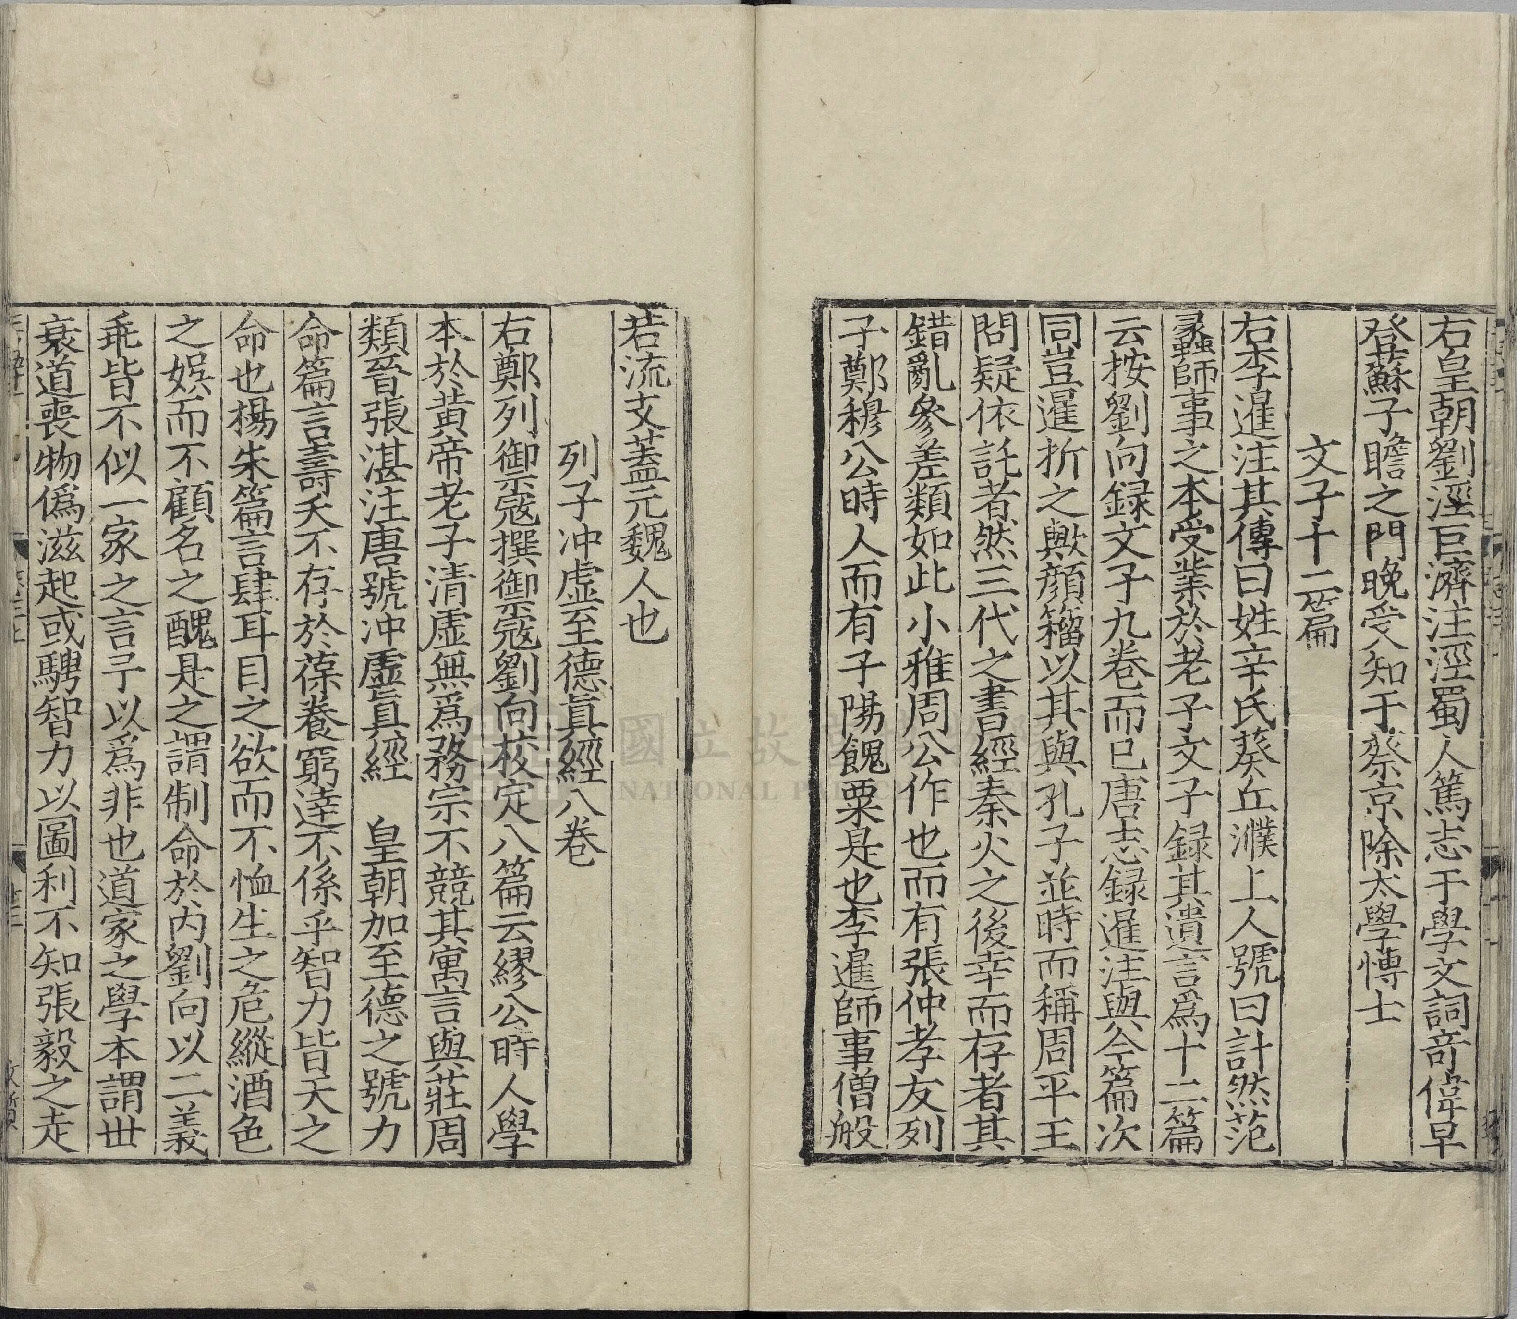 右皇朝劉涇巨濟注涇蜀人篤志于學文詞竒偉早
登蘇子瞻之門晚受知于蔡京除太學慱士
文子十二篇
右李暹注其傳曰姓辛氏葵丘濮上人號曰計然范
蠡師事之本受業於老子文子録其遺言爲十二篇
云按劉向録文子九卷而巳唐志録暹注與今篇次
同豈暹析之歟顔籀以其與孔子並時而稱周平王
問疑依託者然三代之書經秦火之後幸而存者其
錯亂參差類如此小雅周公作也而有張仲孝友列
子鄭穆公時人而有子陽餽粟是也李暹師事僧般
若流支蓋元魏人也
列子冲虚至德真經八卷
右鄭列御㓂撰御㓂劉向校定八篇云繆公時人學
本於黄帝老子清虚無爲務宗不競其寓言與莊周
類晉張湛注唐號冲虚真經 皇朝加至德之號力
命篇言壽夭不存於葆養窮達不係乎智力皆天之
命也楊朱篇言肆耳目之欲而不恤生之危縱酒色
之娱而不顧名之醜是之謂制命於内劉向以二義
乖皆不似一家之言予以爲非也道家之學本謂世
衰道喪物僞滋起或騁智力以圖利不知張毅之走
國立故宮博物院
NATIONAL PALACE MUSEUM